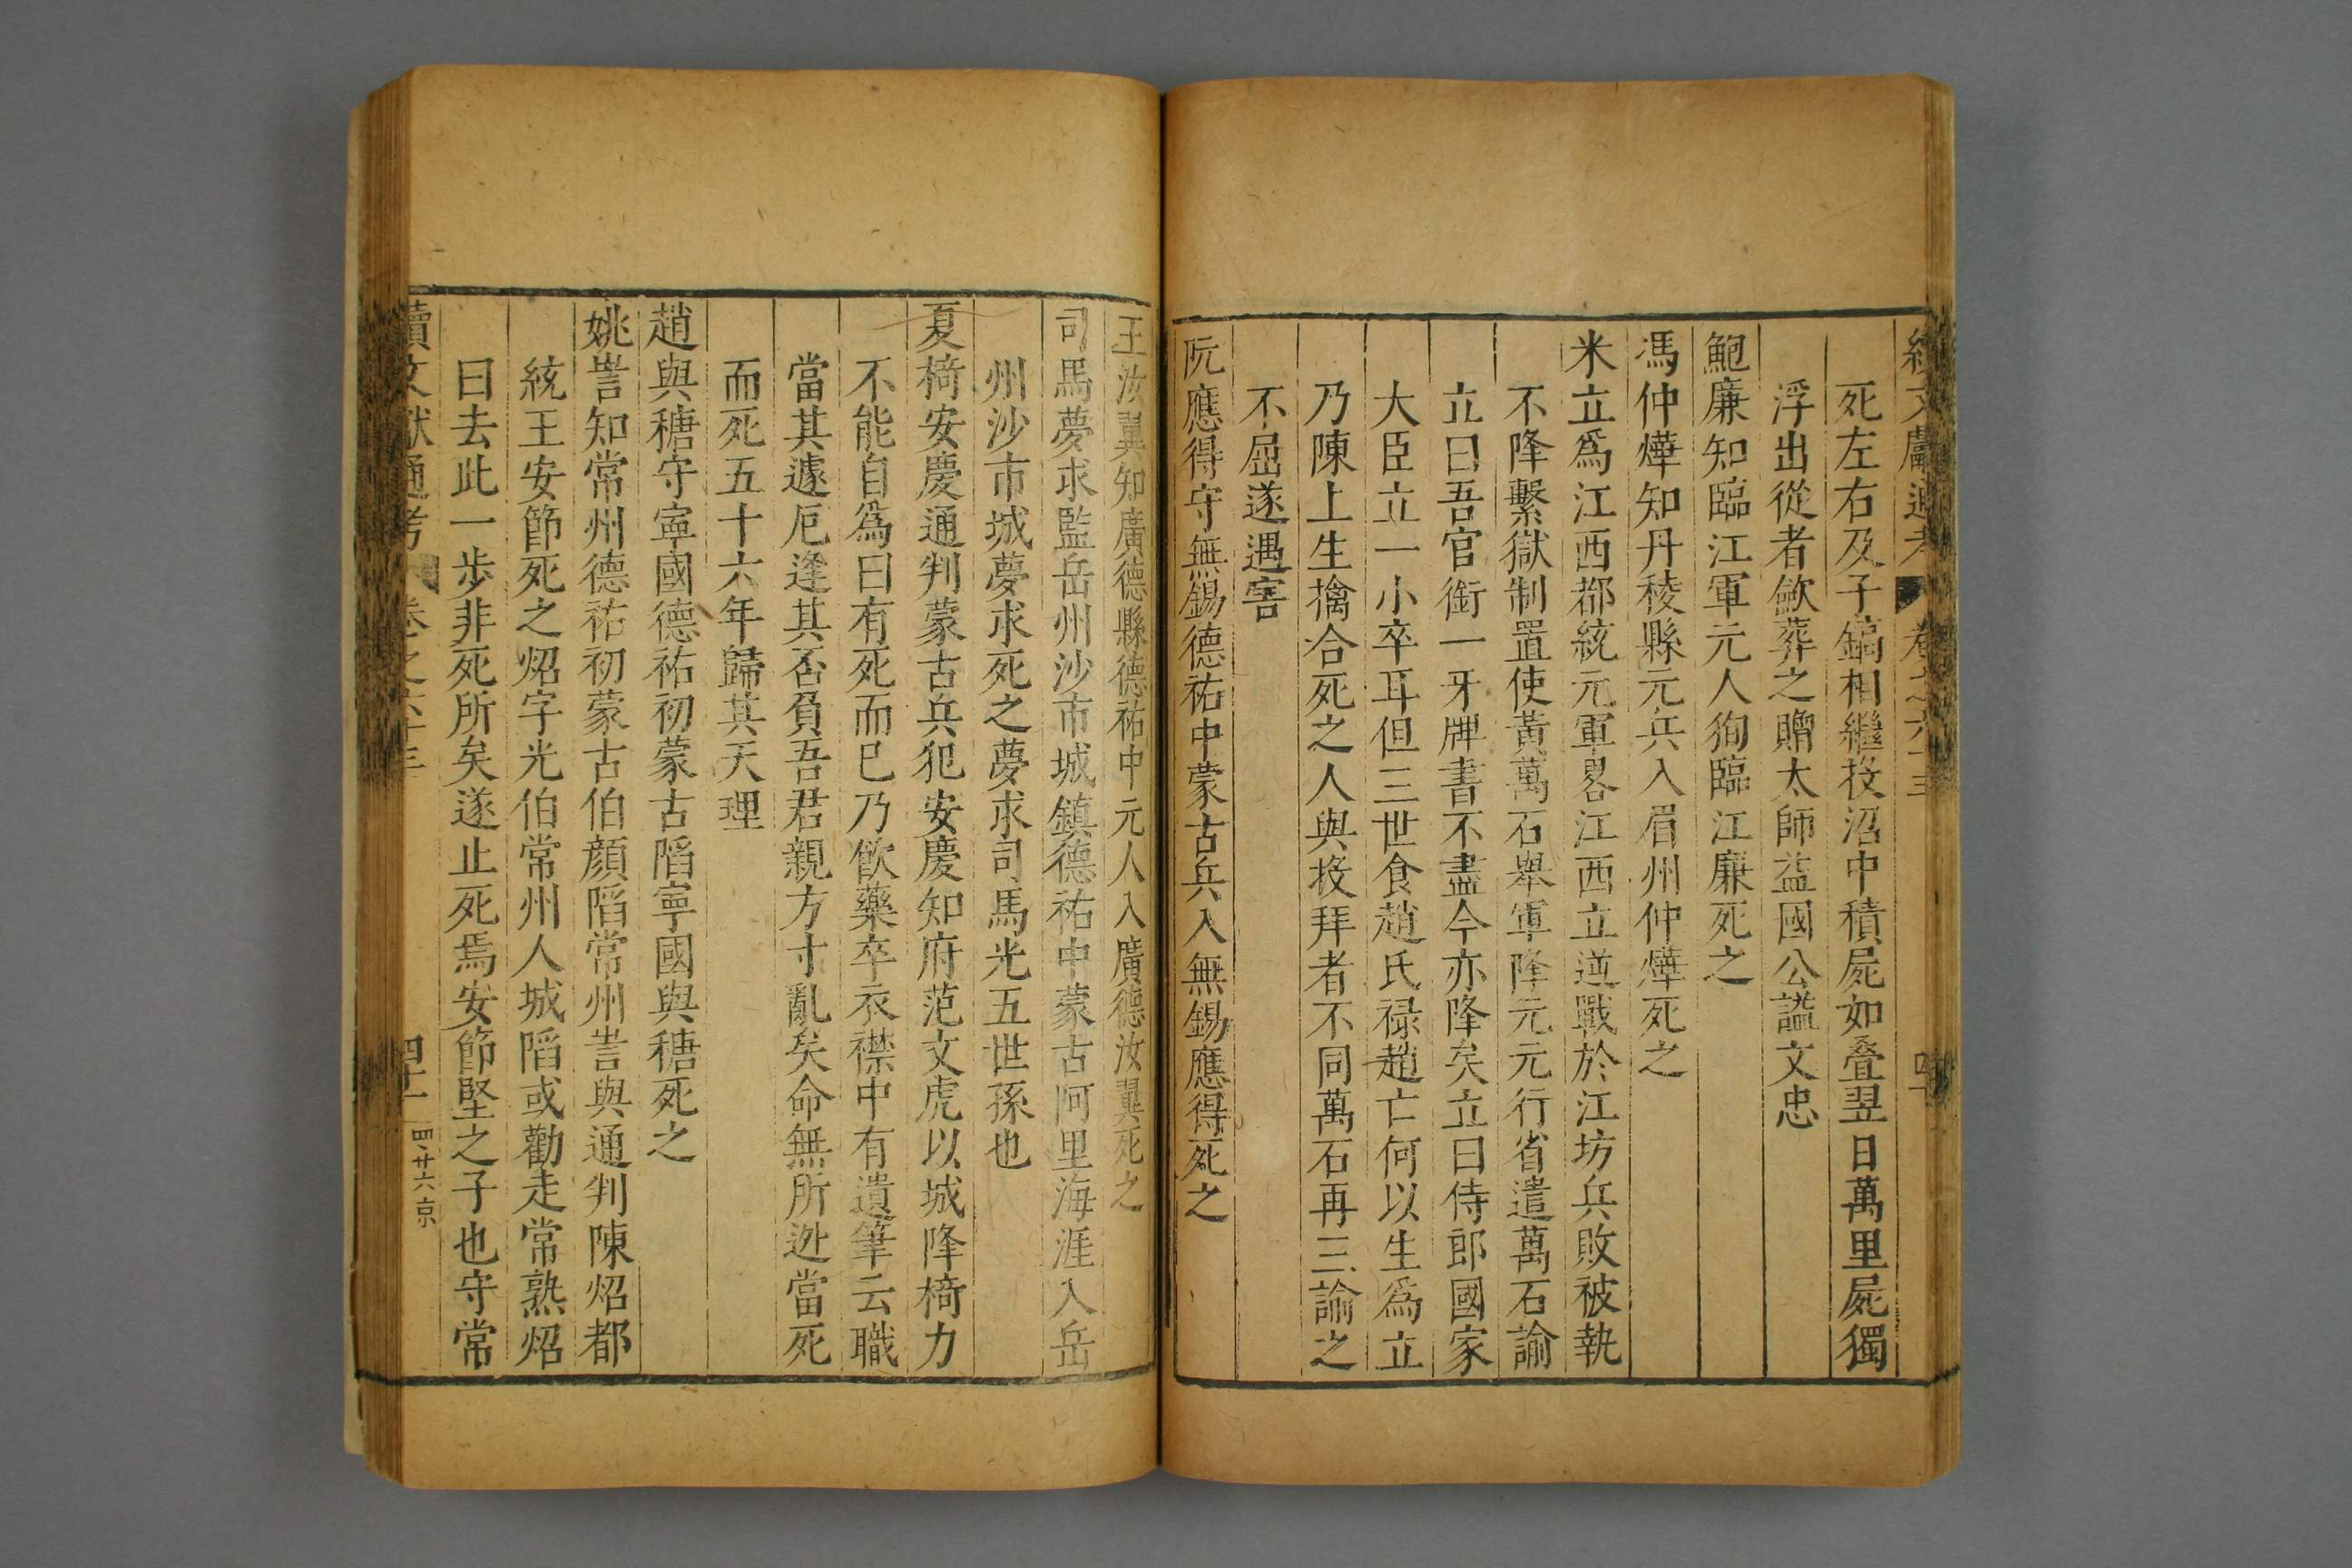 續文獻通考 卷之六十三 四十
死左右及子鎬相繼投沼中積屍如疊翌日萬里屍獨
浮出從者歛葬之贈太師益國公謚文忠
鮑廉知臨江軍元人狥臨江廉死之
馮仲燁知丹稜縣元兵入眉州仲燁死之
米立爲江西都統元軍畧江西立逆戰於江坊兵敗被執
不降繫獄制置使黃萬石舉軍降元元行省遣萬石諭
立曰吾官銜一牙牌書不盡今亦降矣立曰侍郎國家
大臣立一小卒耳但三世食趙氏禄趙亡何以生爲立
乃陳上生擒合死之人與投拜者不同萬石再三諭之
不屈遂遇害
阮應得守無錫德祐中蒙古兵入無錫應得死之
王汝翼知廣德縣德祐中元人入廣德汝翼死之
司馬夢求監岳州沙市城鎮德祐中蒙古阿里海涯入岳
州沙市城夢求死之夢求司馬光五世孫也
夏椅安慶通判蒙古兵犯安慶知府范文虎以城降椅力
不能自爲曰有死而已乃飲藥卒衣襟中有遺筆云職
當其遽厄逢其否負吾君親方寸亂矣命無所迯當死
而死五十六年歸其天理
趙與穂守寧國德祐初蒙古陷寧國與穂死之
姚訔知常州德祐初蒙古伯顏陷常州訔與通判陳炤都
統王安節死之炤字光伯常州人城陷或勸走常熟炤
曰去此一步非死所矣遂止死焉安節堅之子也守常
續文獻通考 卷之六十三 四十一 四廿六京